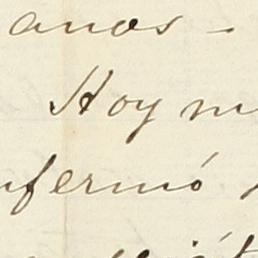 anos -
Hoy m
nfermó